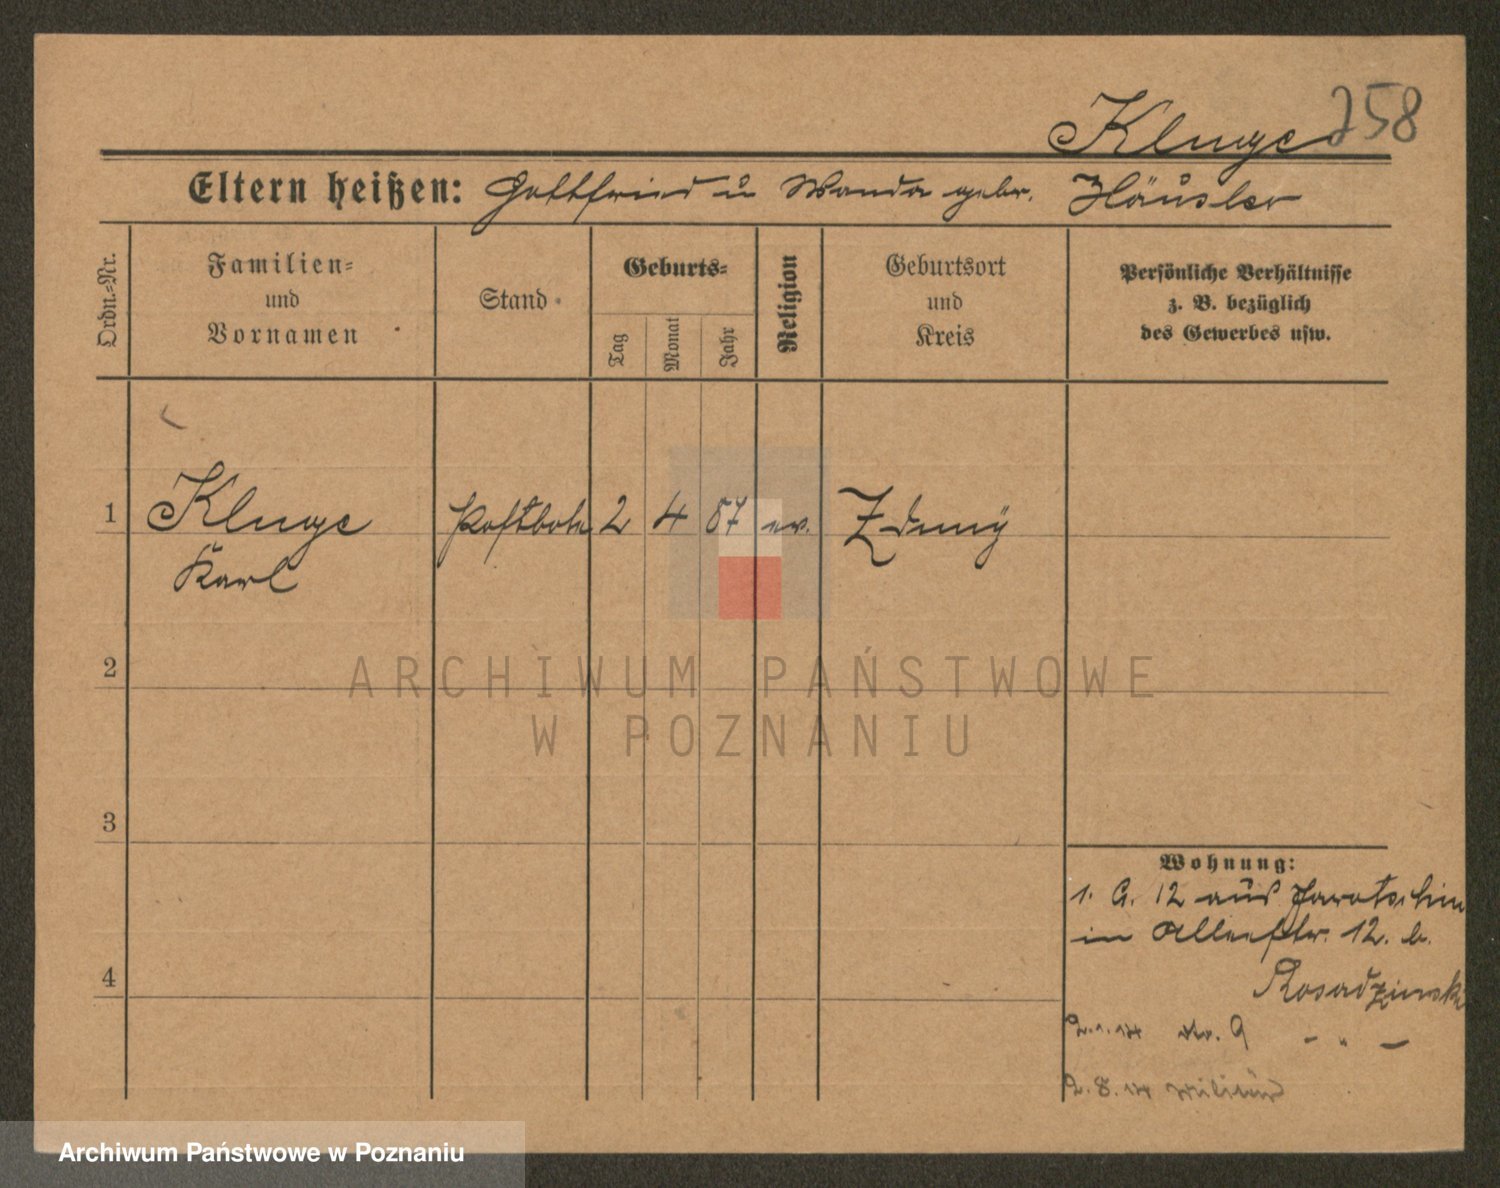 Kluge 258
Eltern heißen: Gottfried u Wanda gebr. Häusler
Ordn.-Nr.
Familien-
und
Vornamen
Stand
Geburts-
Tag
Monat
Jahr
Religion
Geburtsort
und
Kreis
Persönliche Verhältnisse
z. B. bezüglich
des Gewerbes usw.
1 Kluge Postbote 2 4 87 ev. Zduny
Karl
2
3
4
Wohnung:
1. G. 12 aus Jarotschin
in Alleestr. 12. b.
Rosadzinski
2.1.14 No. 9 - " -
2.8.14 Militär
ARCHIWUM PAŃSTWOWE
W POZNANIU
Archiwum Państwowe w Poznaniu